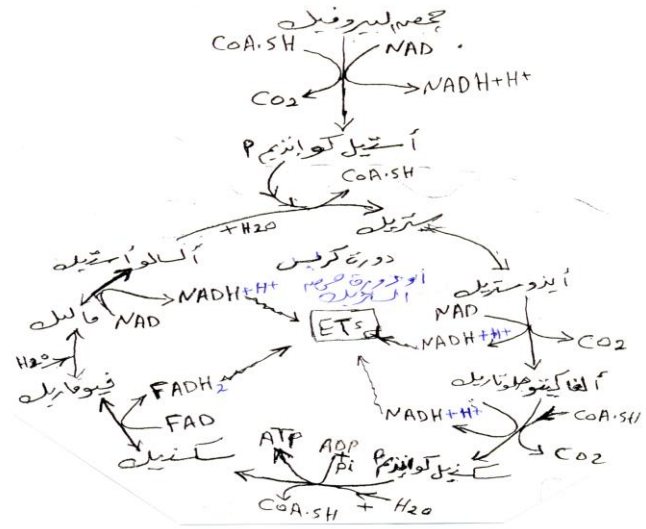 حمض البيروفيك
CoA.SH
NAD
CO2
NADH+H+
أستيل كو إنزيم P
CoA.SH
+H2O
ستريك
أكسالو أستيك
دورة كربس
أو دورة حمض
الستريك
أيزوستريك
NADH+H+
NAD
ماليك
ETS
NAD
NADH+H+
CO2
H2O
فيوماريك
ألفا كيتو جلوتاريك
FADH2
FAD
NADH+H+
CoA.SH
CO2
سكسنيك
ATP
ADP
Pi
سكسنيل كو إنزيم P
CoA.SH + H2O